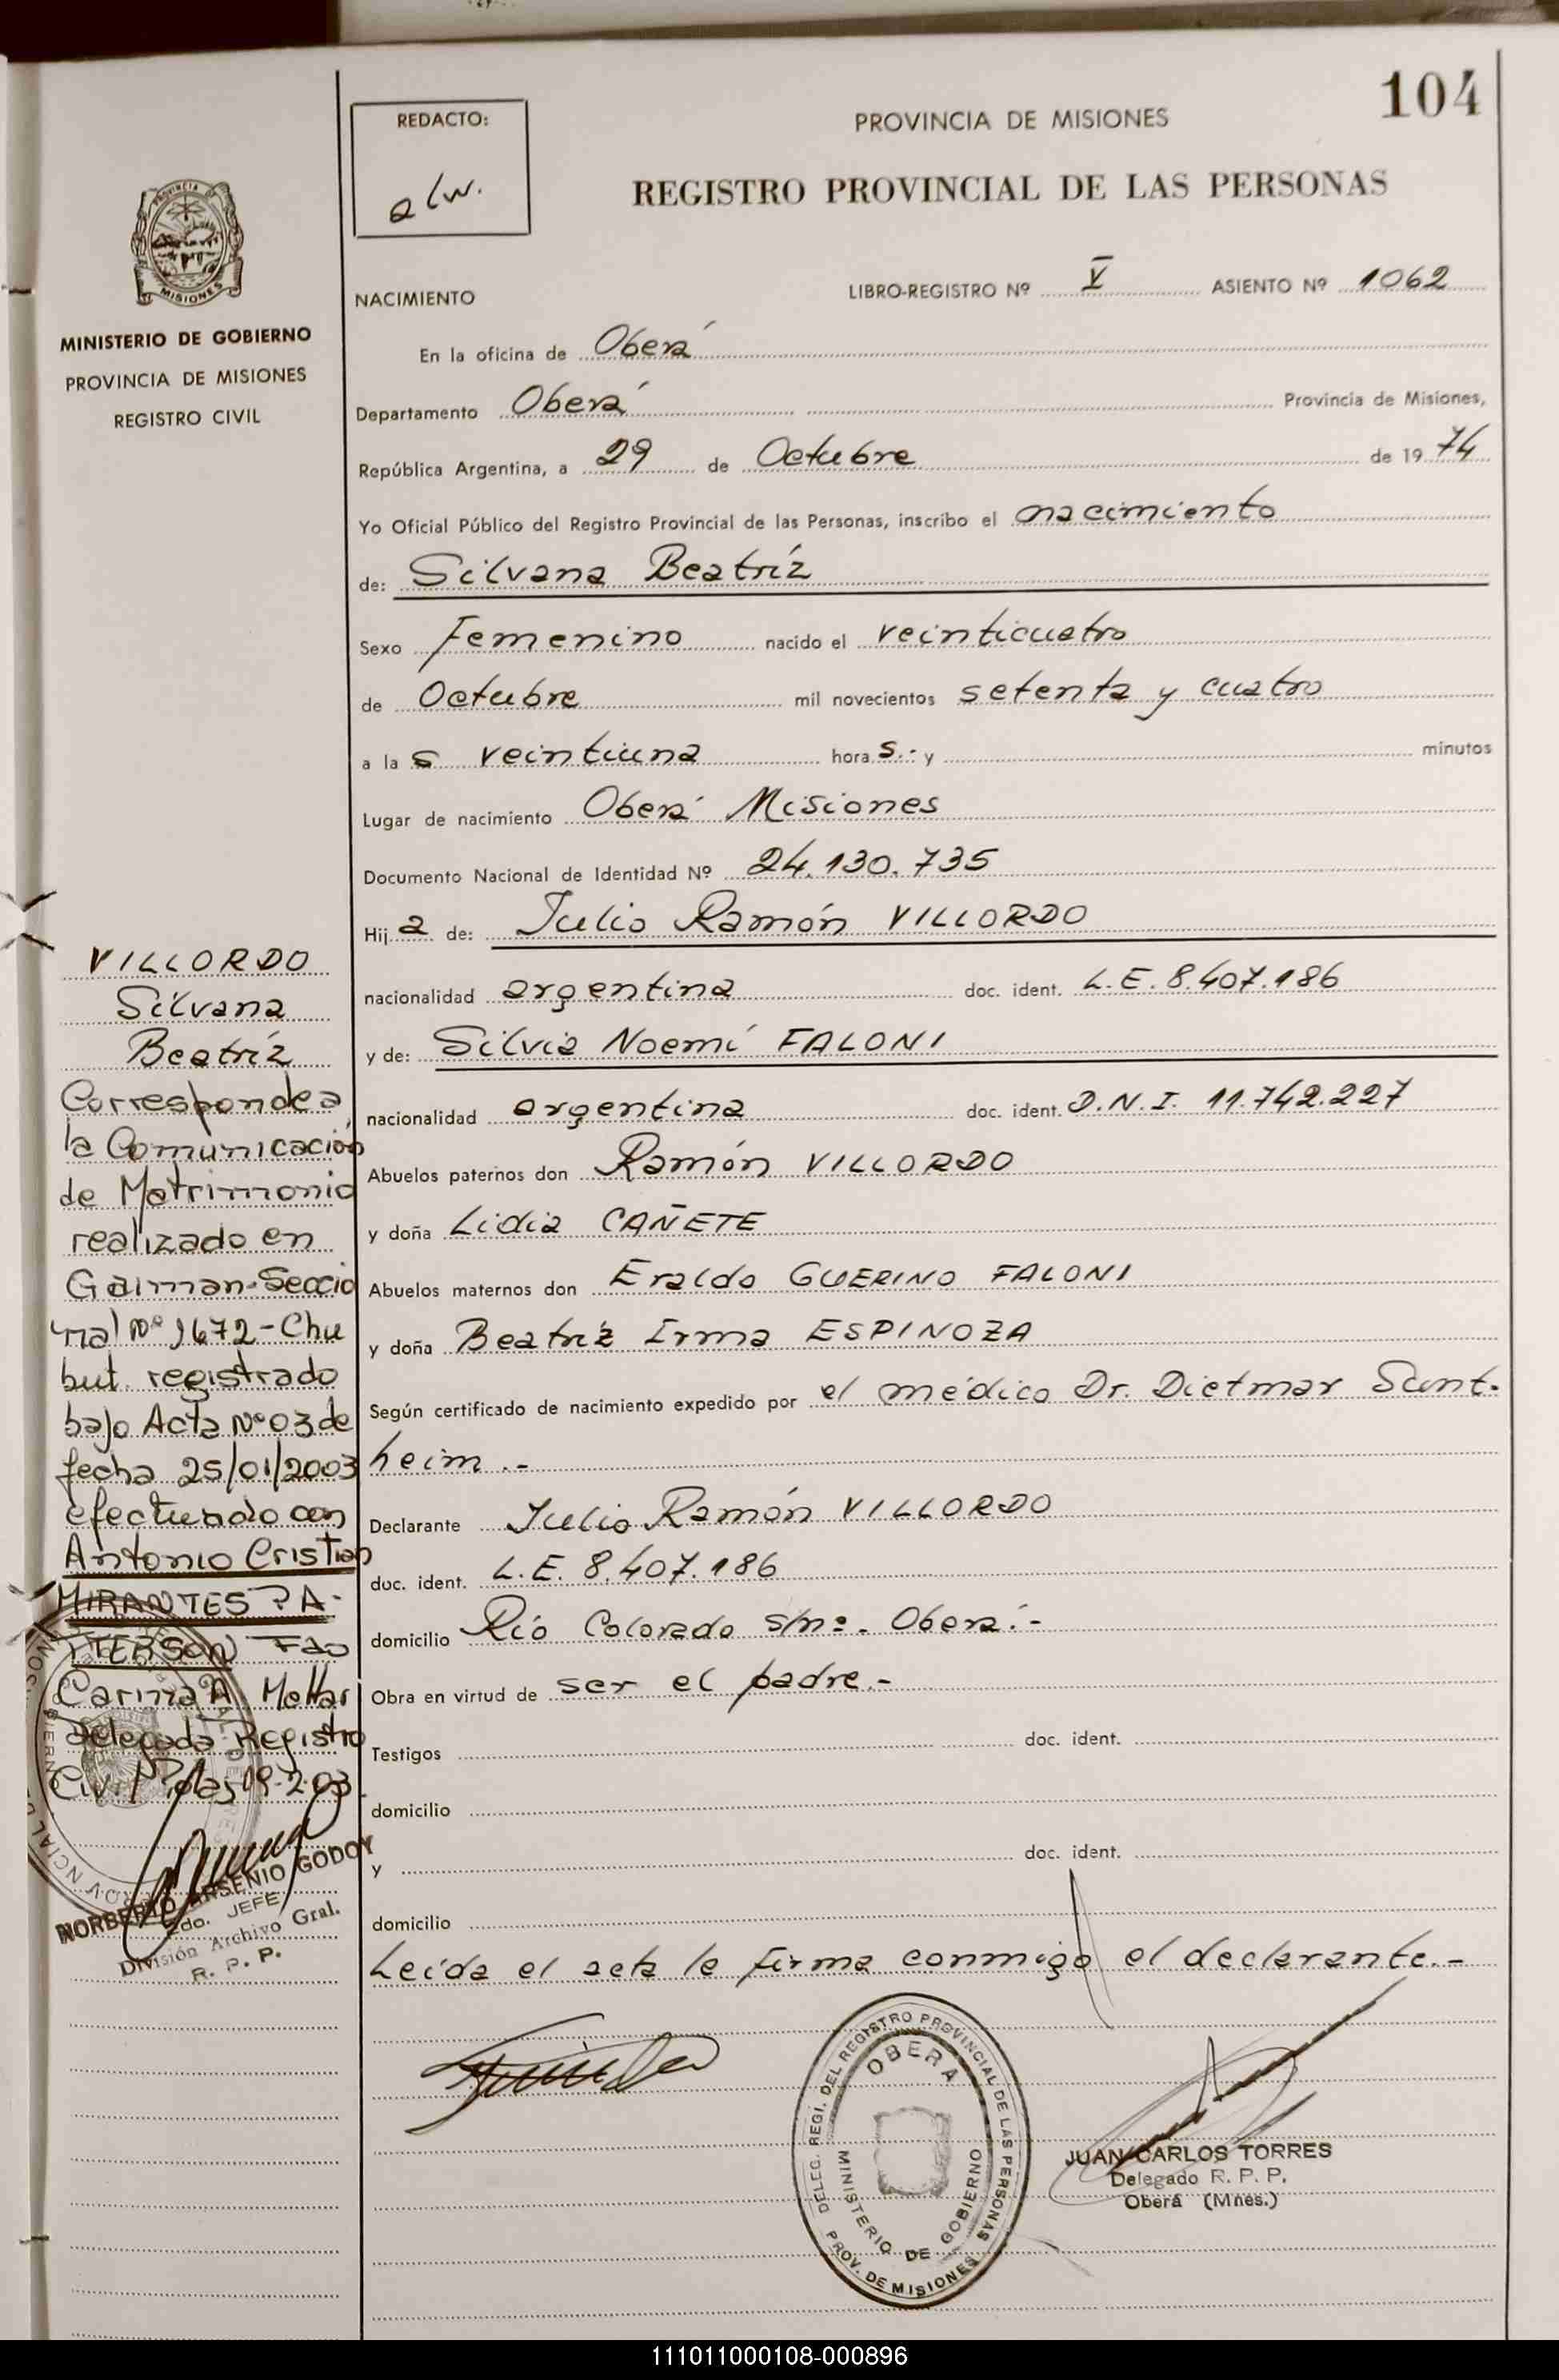 104
REDACTO:
alw.
PROVINCIA DE MISIONES
REGISTRO PROVINCIAL DE LAS PERSONAS
NACIMIENTO
LIBRO-REGISTRO Nº V ASIENTO Nº 1062
En la oficina de Oberá
Departamento Oberá Provincia de Misiones,
República Argentina, a 29 de Octubre de 1974
Yo Oficial Público del Registro Provincial de las Personas, inscribo el nacimiento
de: Silvana Beatríz
Sexo Femenino nacido el veinticuatro
de Octubre mil novecientos setenta y cuatro
a la s veintiuna hora s.- y minutos
Lugar de nacimiento Oberá Misiones
Documento Nacional de Identidad Nº 24.130.735
Hij a de: Julio Ramón VILLORDO
nacionalidad argentina doc. ident. L.E. 8.407.186
y de: Silvia Noemí FALONI
nacionalidad argentina doc. ident. D.N.I. 11.742.227
Abuelos paternos don Ramón VILLORDO
y doña Lidia CAÑETE
Abuelos maternos don Eraldo GUERINO FALONI
y doña Beatríz Irma ESPINOZA
Según certificado de nacimiento expedido por el médico Dr. Dietmar Sont-
heim.-
Declarante Julio Ramón VILLORDO
doc. ident. L.E. 8.407.186
domicilio Río Colorado s/nº. Oberá.-
Obra en virtud de ser el padre.-
Testigos doc. ident.
domicilio
y doc. ident.
domicilio
Leída el acta la firma conmigo el declarante.-
DELEG. REGI. DEL REGISTRO PROVINCIAL DE LAS PERSONAS
OBERA
MINISTERIO DE GOBIERNO
PROV. DE MISIONES
JUAN CARLOS TORRES
Delegado R. P. P.
Oberá (Mnes.)
PROVINCIA DE
MISIONES
MINISTERIO DE GOBIERNO
PROVINCIA DE MISIONES
REGISTRO CIVIL
VILLORDO
Silvana
Beatríz
Corresponde a
la Comunicación
de Matrimonio
realizado en
Gaiman-Seccio
nal Nº 1672-Chu
but. registrado
bajo Acta Nº 03 de
fecha 25/01/2003
efectuado con
Antonio Cristian
MIRANTES PA-
TTERSON Fdo
Carina A.
Delegada Registro
Civ. 19-2-03
NORBERTO ARSENIO GODOY
2do. JEFE
División Archivo Gral.
R. P. P.
111011000108-000896